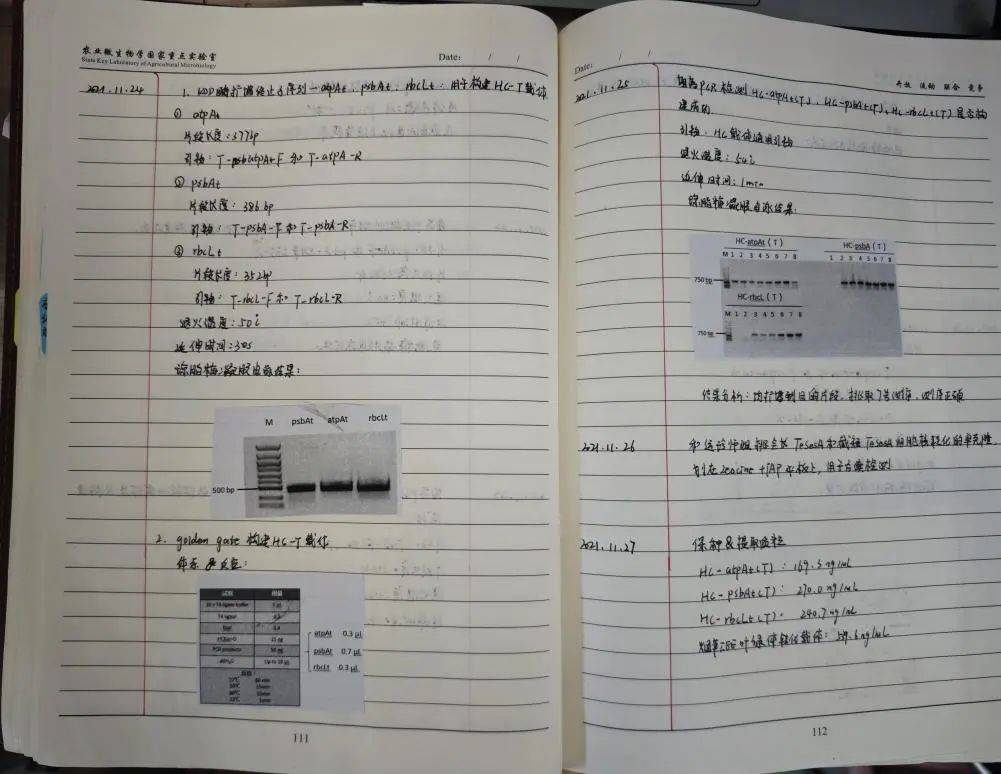 农业微生物学国家重点实验室
State Key Laboratory of Agricultural Microbiology
Date: / /
2021.11.24
1. KOD酶扩增终止子序列—atpAt, psbAt, rbcLt, 用于构建HC-T载体
① atpAt
片段长度: 377bp
引物: T-atpAt-F 和 T-atpA-R
② psbAt
片段长度: 386 bp
引物: T-psbA-F 和 T-psbA-R
③ rbcLt
片段长度: 352bp
引物: T-rbcL-F 和 T-rbcL-R
退火温度: 50℃
延伸时间: 30s
琼脂糖凝胶电泳结果:
M psbAt atpAt rbcLt
500 bp
2. golden gate 构建HC-T载体
体系及反应:
试剂 用量
10 × T4 ligase buffer
T4 ligase
PCR products 50 ng
ddH₂O Up to 10 μL
atpAt 0.3 μL
psbAt 0.7 μL
rbcLt 0.3 μL
37℃
50℃
80℃
12℃
111
Date: / /
开放 流动 联合 竞争
2021.11.25
菌落PCR检测HC-atpAt(T), HC-psbAt(T), HC-rbcLt(T)是否构
建成功
引物: HC载体通用引物
退火温度: 54℃
延伸时间: 1min
琼脂糖凝胶电泳结果:
HC-atpAt(T) HC-psbA(T)
M 1 2 3 4 5 6 7 8 1 2 3 4 5 6 7 8
750 bp
HC-rbcL(T)
M 1 2 3 4 5 6 7 8
750 bp
结果分析: 均扩增到目的片段, 挑取7号测序, 测序正确
2021.11.26
用于抗性检测
2021.11.27
保种&提取质粒
HC-atpAt(T): 169.5 ng/uL
HC-psbAt(T): 270.0 ng/uL
HC-rbcLt(T): 240.7 ng/uL
112